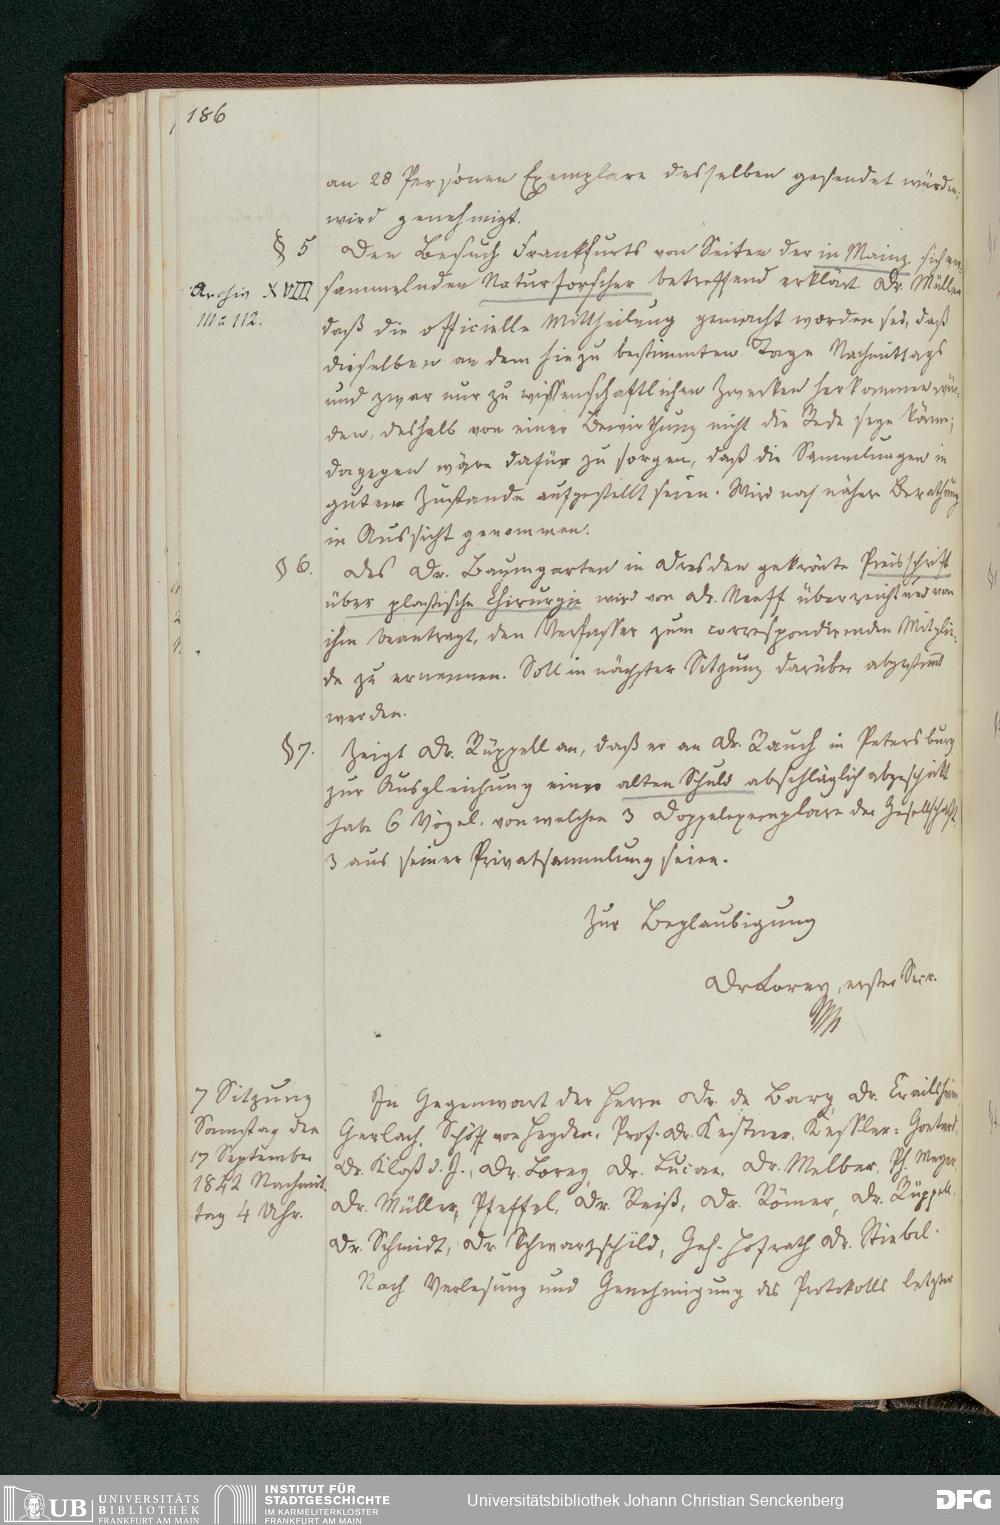 186
an 28 Personen Exemplare desselben gesendet würden;
wird genehmigt.
§ 5 Den Besuch Frankfurts von Seiten der in Mainz sich ver-
Archiv XVIII
111 u 112.
sammelnden Naturforscher betreffend erklärt Dr. Müller
daß die officielle Mittheilung gemacht worden sei, daß
dieselben an dem hiezu bestimmten Tage Nachmittags
und zwar nur zu wissenschaftlichen Zwecken herkommen wür-
den, deshalb von einer Bewirthung nicht die Rede seye könne;
dagegen wäre dafür zu sorgen, daß die Sammlungen in
gutem Zustande aufgestellt seien. Wird noch näher Berathung
in Aussicht genommen.
§ 6. Des Dr. Baumgarten in Dresden gekrönte Preisschrift
über plastische Chirurgie wird von Dr. Neeff überreicht und von
ihm beantragt, den Verfasser zum correspondirenden Mitglie-
de zu ernennen. Soll in nächster Sitzung darüber abgestimmt
werden.
§ 7. Zeigt Dr. Rüppell an, daß er an Dr. Rauch in Petersburg
zur Ausgleichung einer alten Schuld abschläglich abgeschickt
habe 6 Vögel, von welchen 3 Doppelexemplare der Gesellschaft,
3 aus seiner Privatsammlung seien.
Zur Beglaubigung
Dr Lorey, erster Secr.
7 Sitzung
Samstag den
17 September
1842 Nachmit
tag 4 Uhr.
In Gegenwart der Herrn Dr. de Bary, Dr. Crailsheim
Gerlach, Schöff von Heyden, Prof. Dr. Kestner, Kessler-Gontard,
Dr. Kloß d. J., Dr. Lorey, Dr. Lucae, Dr. Melber, Ph. Meyer,
Dr. Müller, Pfeffel, Dr. Reiß, Dr. Römer, Dr. Rüppell,
Dr. Schmidt, Dr Schwarzschild, Geh. Hofrath Dr. Stiebel.
Nach Verlesung und Genehmigung des Protokolls letzter
UB UNIVERSITÄTS
BIBLIOTHEK
FRANKFURT AM MAIN
INSTITUT FÜR
STADTGESCHICHTE
IM KARMELITERKLOSTER
FRANKFURT AM MAIN
Universitätsbibliothek Johann Christian Senckenberg
DFG